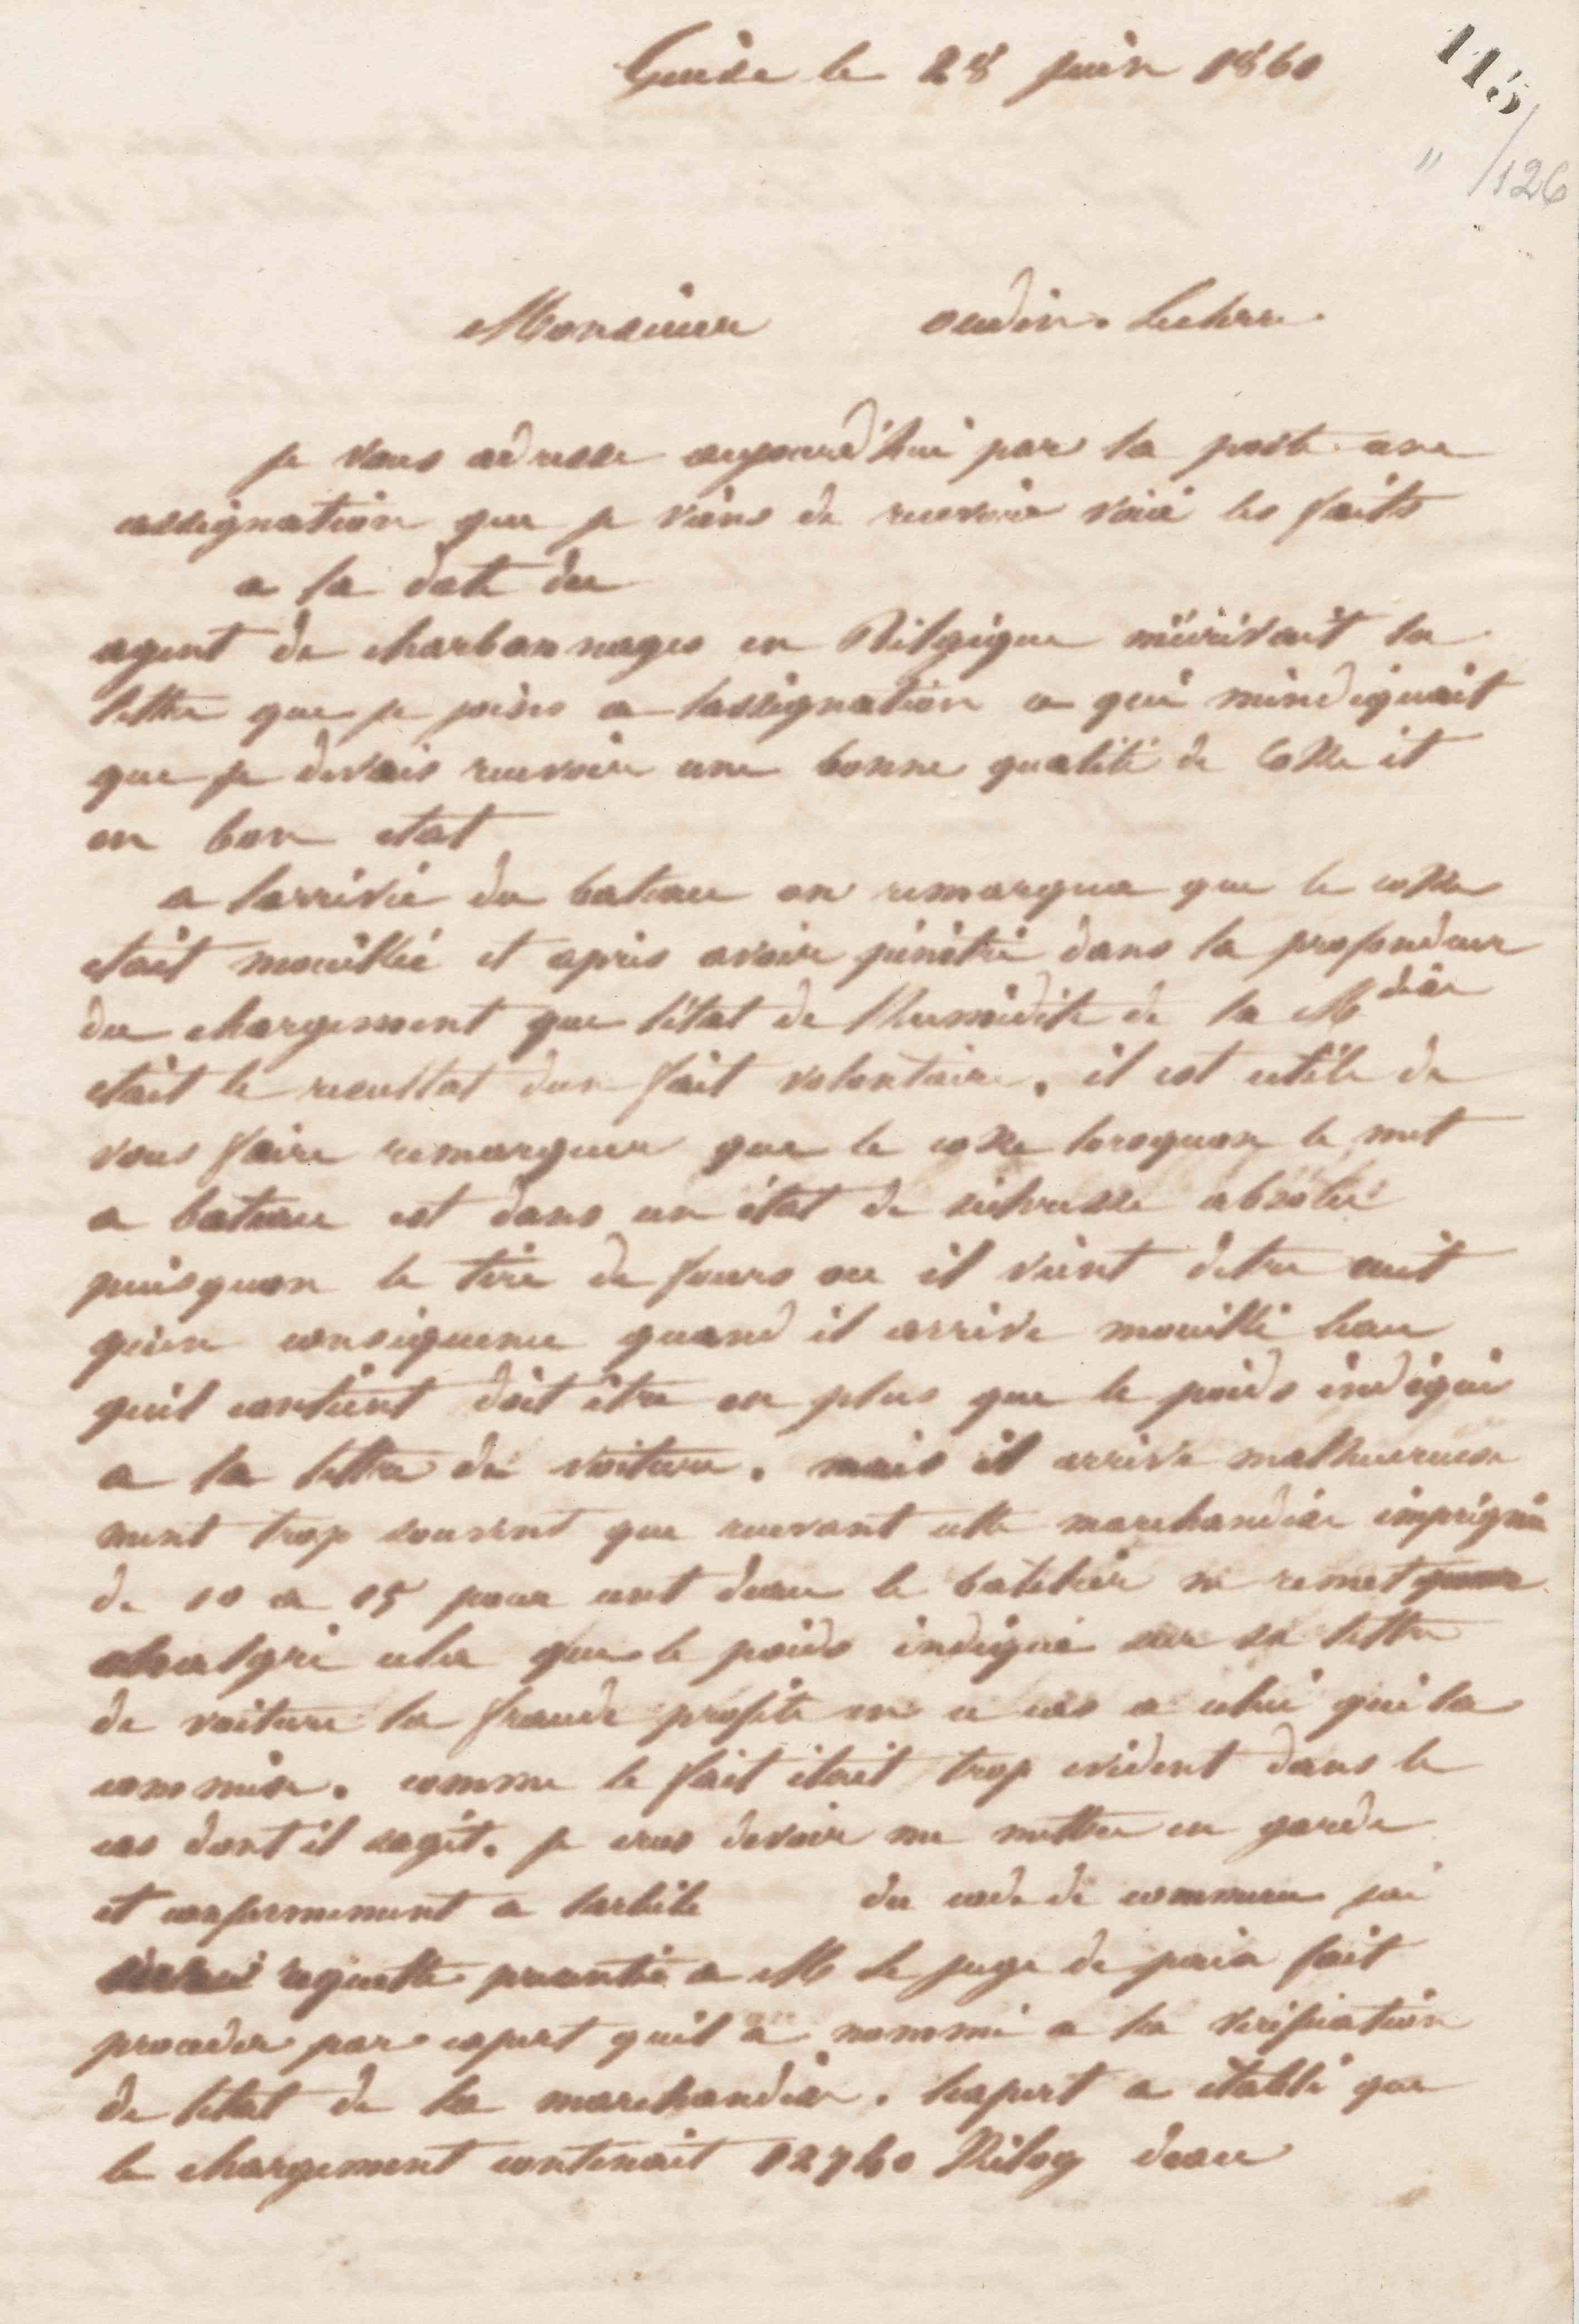 115
" /126
Guise le 28 juin 1860
Monsieur oudin. Leclerc.
je vous adresse aujourd'hui par la poste une
assignation que je viens de recevoir voici les faits
a la date du
agent de charbonnages en Belgique m'écrivait la
lettre que je joins a lassignation a qui mindiquait
que je devais recevoir une bonne qualité de Coke et
en bon etat
a larrivée du bateau on remarqua que le coke
etait mouillé et après avoir pénétré dans la profondeur
du chargement que létat de lhumidité de la Mdise
etait le resultat dun fait volontaire. il est utile de
vous faire remarquer que le coke lorsquon le met
a bateau est dans un état de sécheresse absolue
puisquon le tire de fours ou il vient detre cuit
quen consequence quand il arrive mouillé leau
quil contient doit être en plus que le poids indiqué
a la lettre de voiture. mais il arrive malheureuse
ment trop souvent que recevant cette marchandise imprégnée
de 10 a 15 pour cent deau le batelier ne remet
malgré cela que le poids indiqué sur sa lettre
de voiture la fraude profite en ce cas a celui qui la
commise. comme le fait était trop evident dans le
cas dont il sagit. je crus devoir me mettre en garde
et conformement a larticle du code de commerce jai
requette presentée a M le juge de paix fait
proceder par expert quil a nommé a la verification
de letat de la marchandise. lexpert a établi que
le chargement contenait 12760 Kilog deau